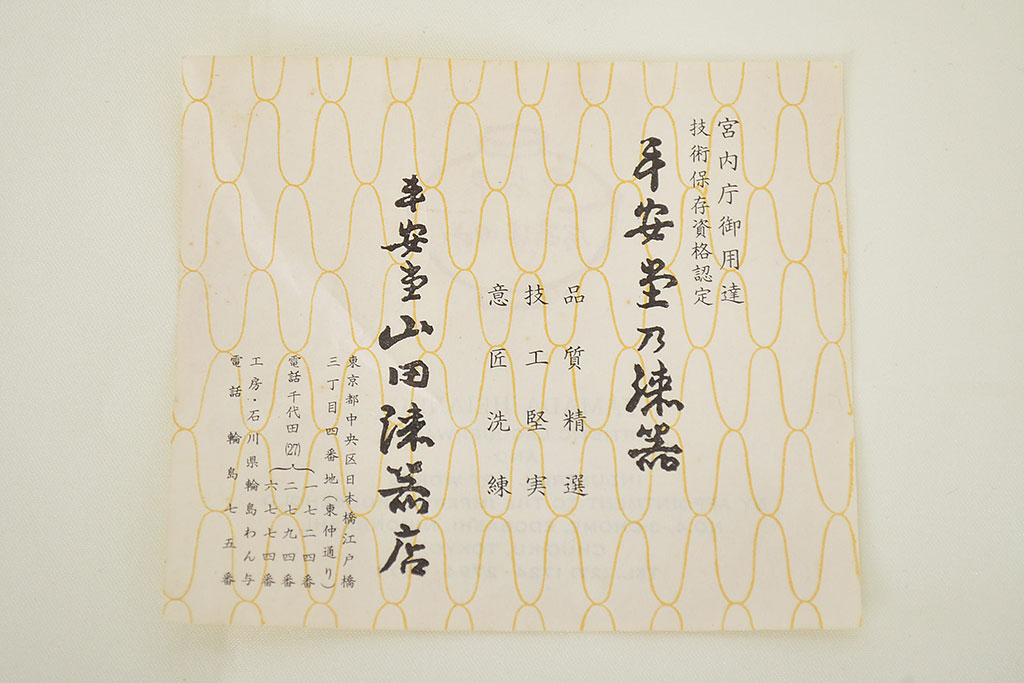 宮内庁御用達
技術保存資格認定
平安堂乃漆器
品質精選
技工堅実
意匠洗練
平安堂山田漆器店
東京都中央区日本橋江戸橋
三丁目四番地(東仲通り)
電話千代田(27)
一七二四番
二七九四番
六七七四番
工房・石川県輪島わん与
電話輪島七五番